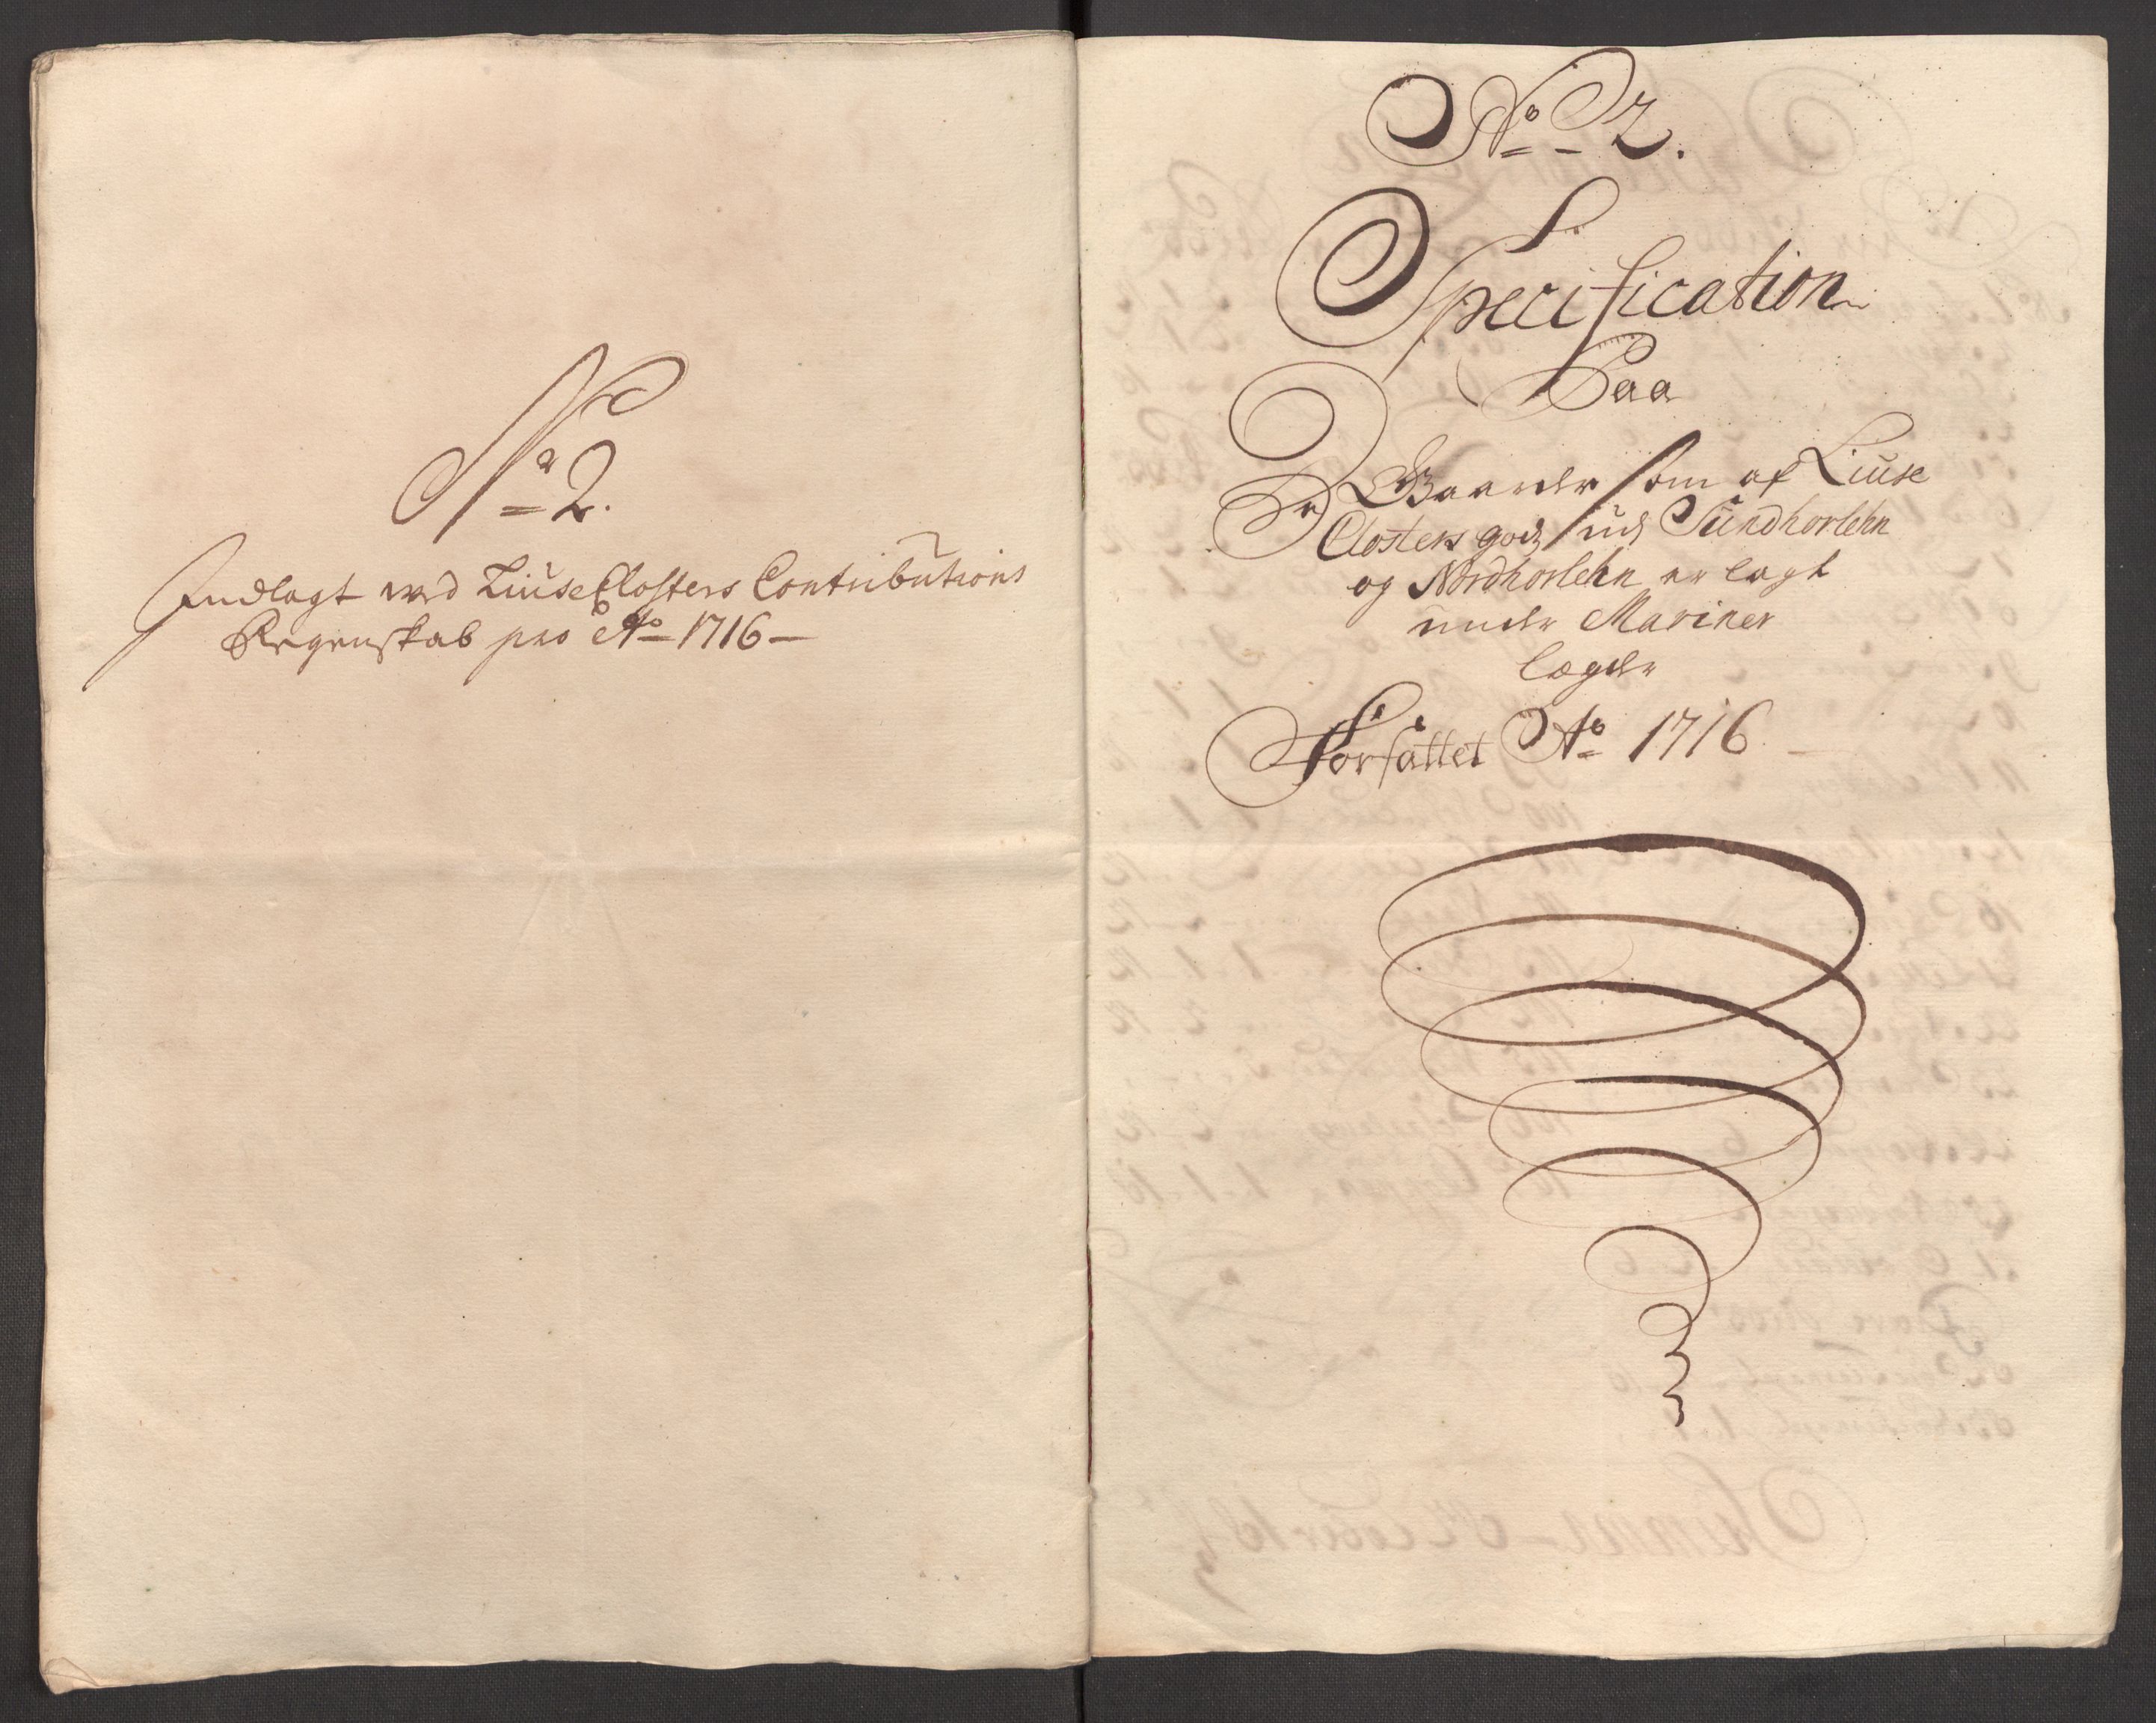 No 2.
Indlagt ved Liuse Closters Contributions
Regenskab pro Ao 1716
No 2.
Specification
Paa
De Gaarder som af Liuse
Closters godz udj Sundhorlehn
og Nordhorlehn er lagt
under Mariner
lægder
Forfattet Ao 1716